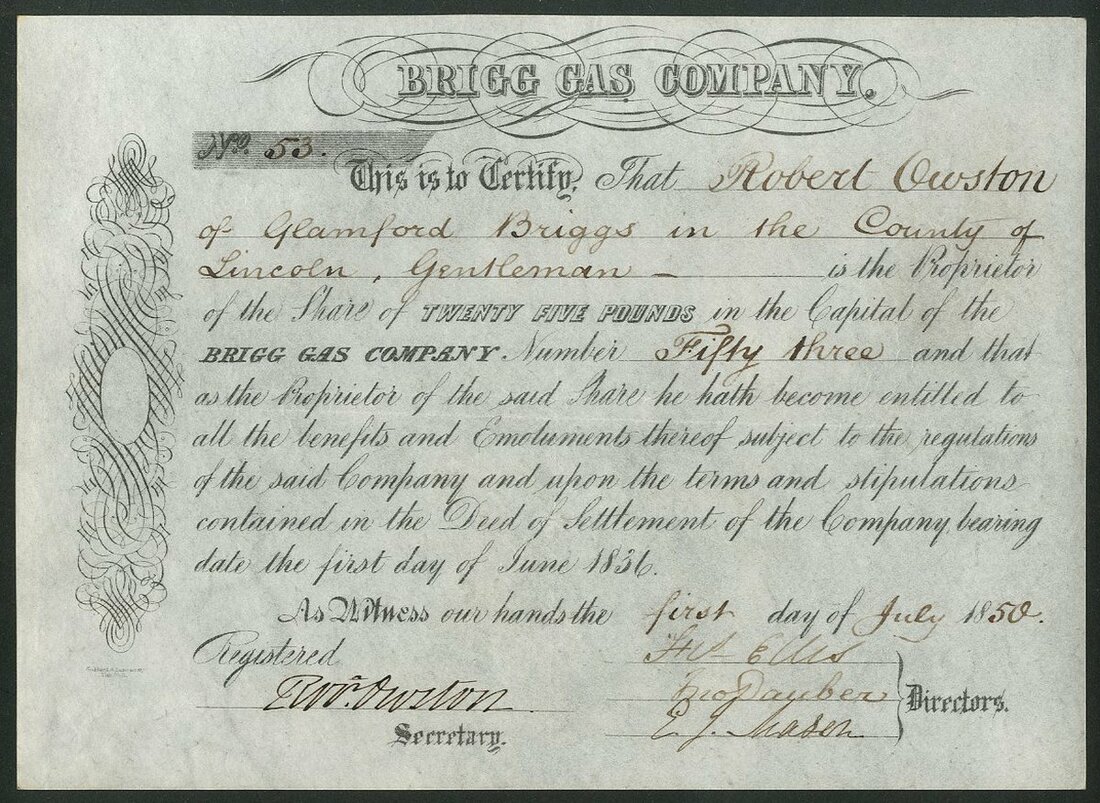 BRIGG GAS COMPANY.
No. 53.
This is to Certify, That Robert Owston
of Glamford Briggs in the County of
Lincoln, Gentleman — is the Proprietor
of the Share of TWENTY FIVE POUNDS in the Capital of the
BRIGG GAS COMPANY. Number Fifty three and that
as the Proprietor of the said Share he hath become entitled to
all the benefits and Emoluments thereof subject to the regulations
of the said Company and upon the terms and stipulations
contained in the Deed of Settlement of the Company bearing
date the first day of June 1836.
As Witness our hands the first day of July 1850.
Registered
Ellis
Owston
Dauber
Directors.
E. J. Mason
Secretary.